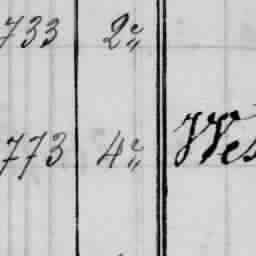 733 2"
773 4" Wes